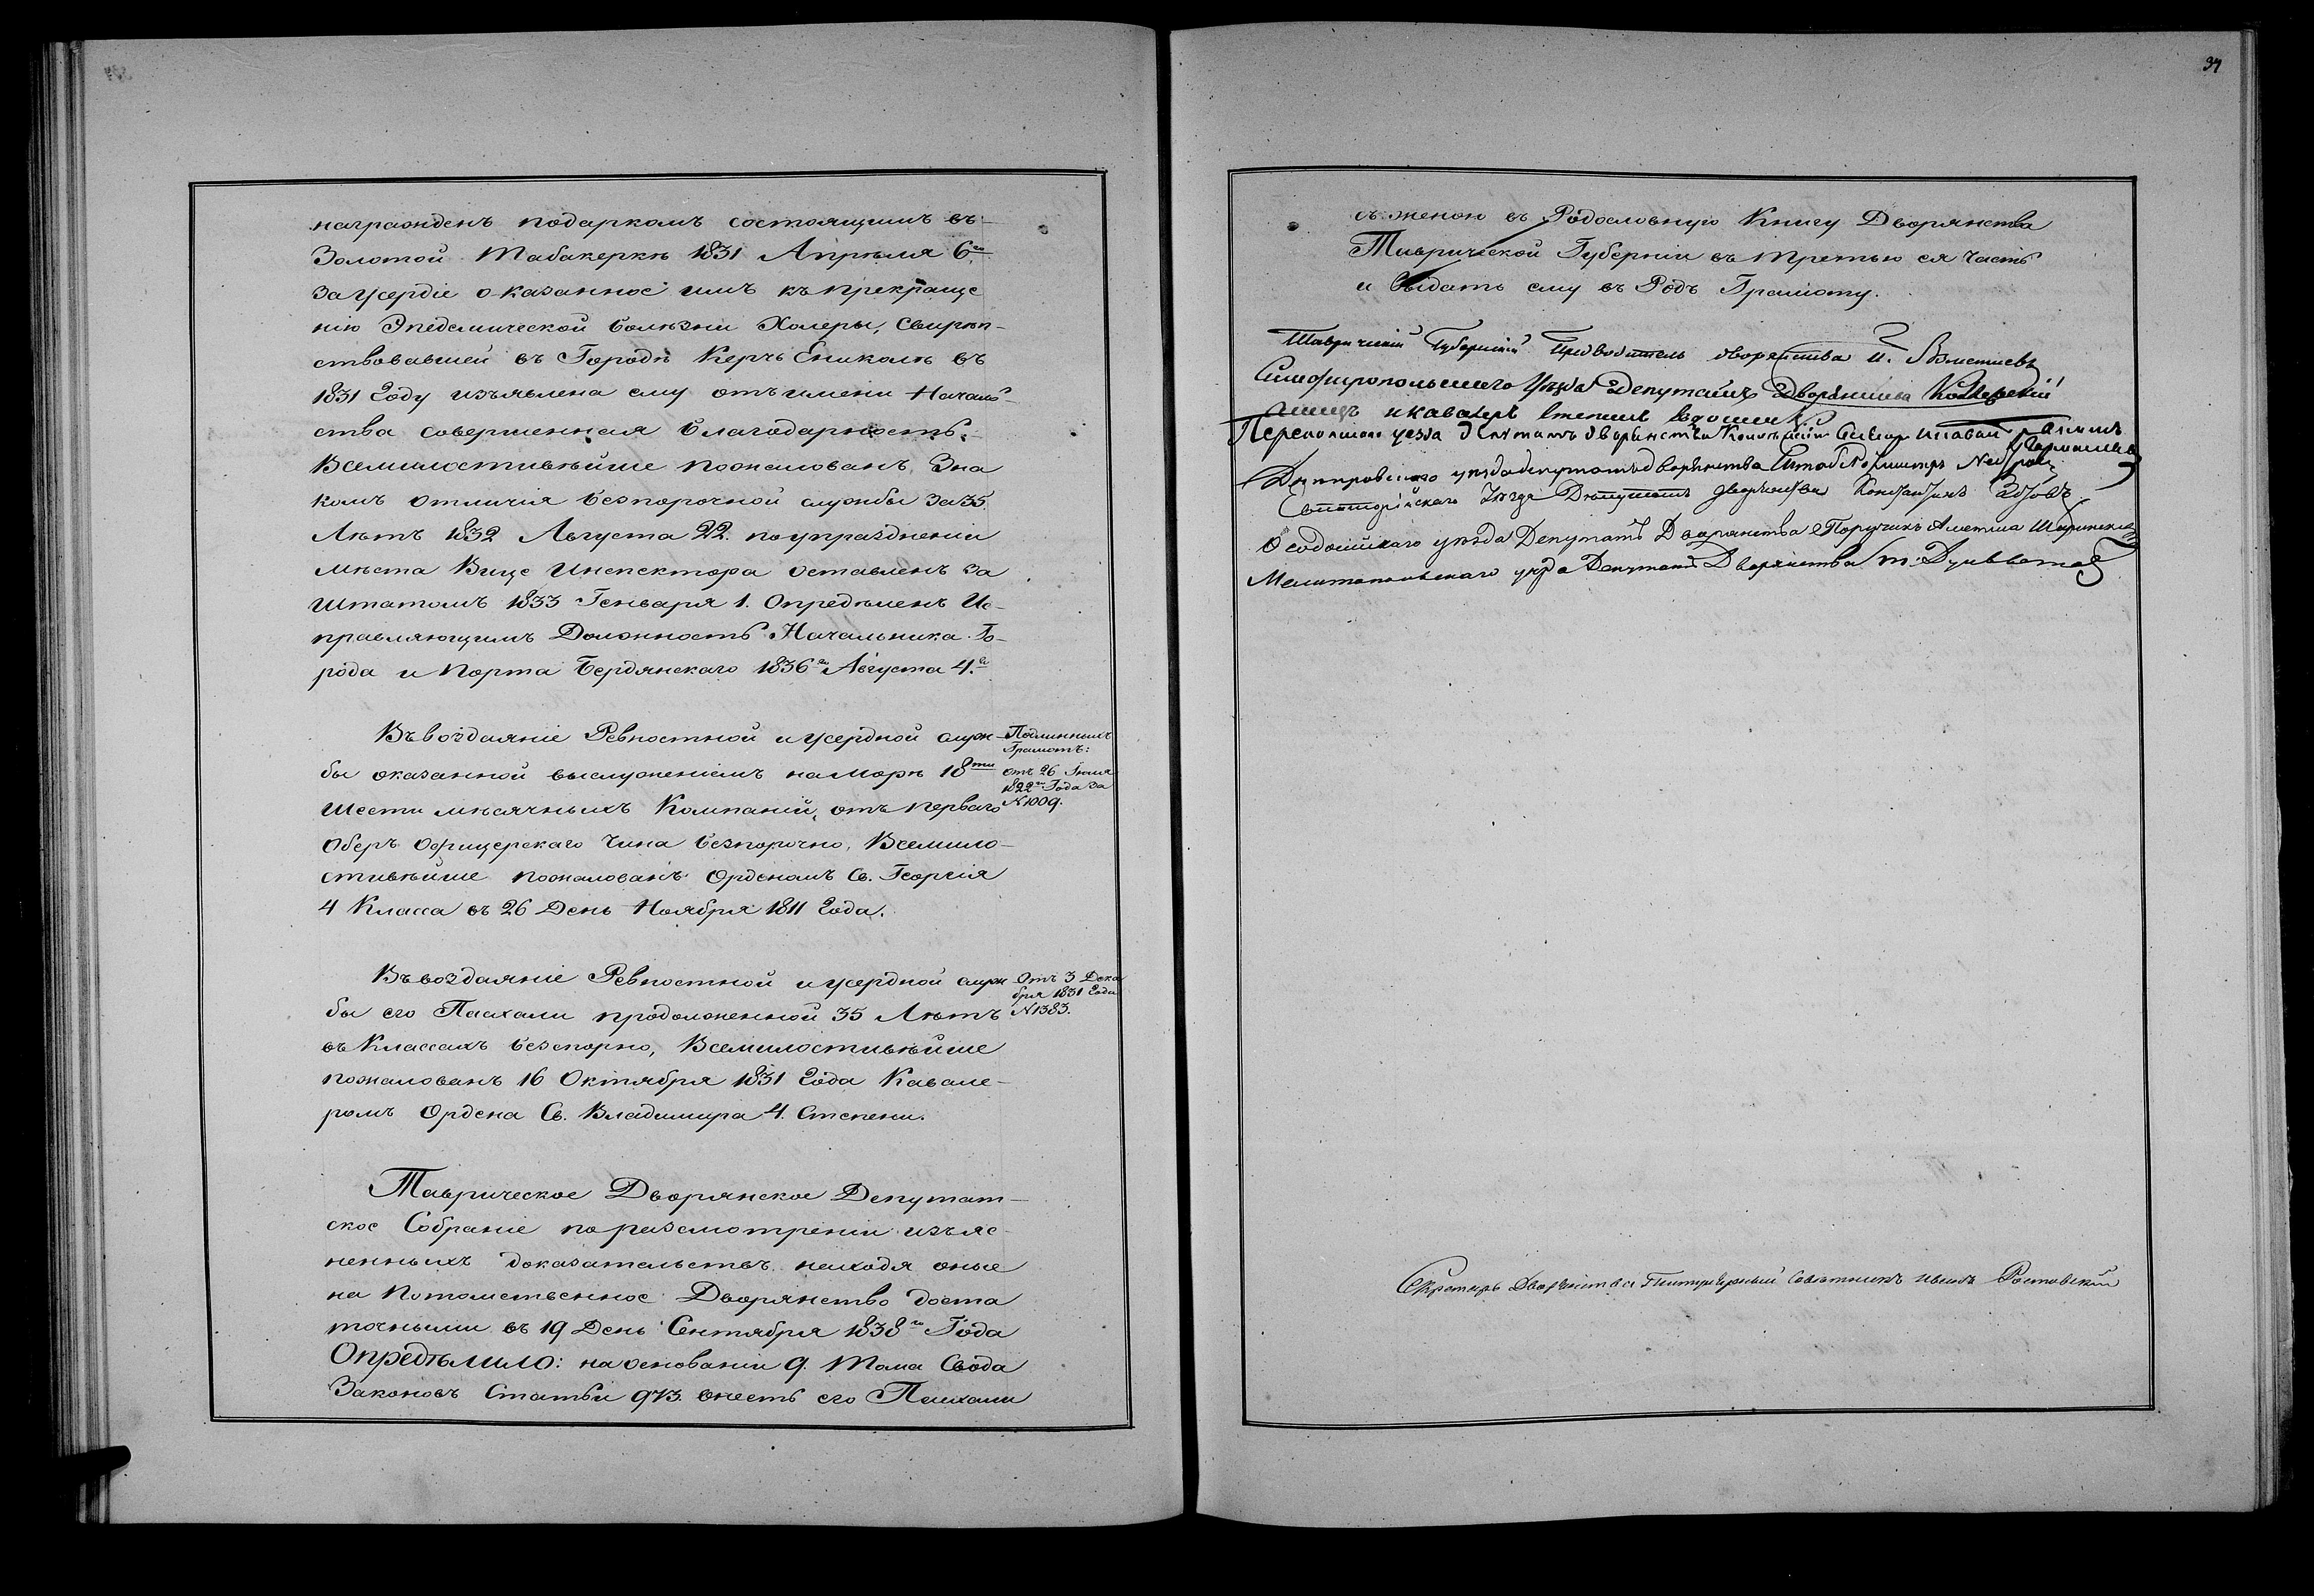 награжденъ подаркомъ состоящимъ въ-
Золотой Табакеркѣ 1831 Апрѣля 6го
За усердіе оказанное имъ къ прекраще
нію Эпедемической болѣзни Холеры, Свирѣп-
ствовавшей въ Городѣ Керчь Ениколѣ въ
1831 Году изъявлена ему отъ имени Началь-
ства совершенная благодарность.
Всемилостивѣйше пожалованъ Зна
комъ отличія безпорочной службы За 35.
Лѣтъ 1832 Августа 22. по упраздненіи
мѣста Вице Инспектора оставленъ за
штатомъ 1833 Генваря 1. Опредѣленъ Ис-
правляющимъ Должность Начальника Го-
рода и Порта Бердянскаго 1836го Августа 4.го
Въ воздаяніе Ревностной и усердной служ-
бы оказанной выслуженіемъ на Морѣ 18ти
Шести мѣсячныхъ Компаній, отъ перваго
Оберъ Офицерскаго Чина безпорочно, Всемило-
стивѣйше пожалованъ Орденомъ Св. Георгія
4 Класса въ 26 День Ноября 1811 Года.
Подлинныхъ
Грамотъ:
отъ 26 Іюля
1822го Года за
N 1009.
Въ воздаяніе Ревностной и усердной служ
бы его Паахали продолженной 35 Лѣтъ
въ Классахъ безспорно, Всемилостивѣйше
пожалованъ 16 Октября 1831 Года Кавале-
ромъ Ордена Св. Владимира 4. Степени.
Отъ 3 Дека
бря 1831 Года
N 1383.
Таврическое Дворянское Депутат-
ское Собраніе по разсмотреніи изъяс-
ненныхъ доказательствъ, находя оные
на Потомственное Дворянство доста
точными въ 19 День Сентября 1838го Года
Опредѣлило: на основаніи 9. Тома Свода
Законовъ Статьи 973. внесть его Паахали
34
съ женою въ Родословную Книгу Дворянства
Таврической Губерніи въ третью ея часть
и Выдать ему въ Родъ Грамоту.
Таврическій Губернскій Предводитель дворянства
Симферопольскаго Уѣзда Депутатъ Дворянства
и кавалеръ
Перекопскаго уезда депутатъ дворянства
Днепровскаго уѣзда депутатъ дворянства Штабс Ротмистръ
Евпаторійскаго Уѣзда Депутатъ дворянства Константинъ
Ѳеодосійскаго уѣзда Депутатъ Дворянства Поручикъ Аметша Ширинскій
Мелитопольскаго уѣзда Депутатъ Дворянства
Секретарь Дворянства Титулярный Совѣтникъ Иванъ Ростовскій